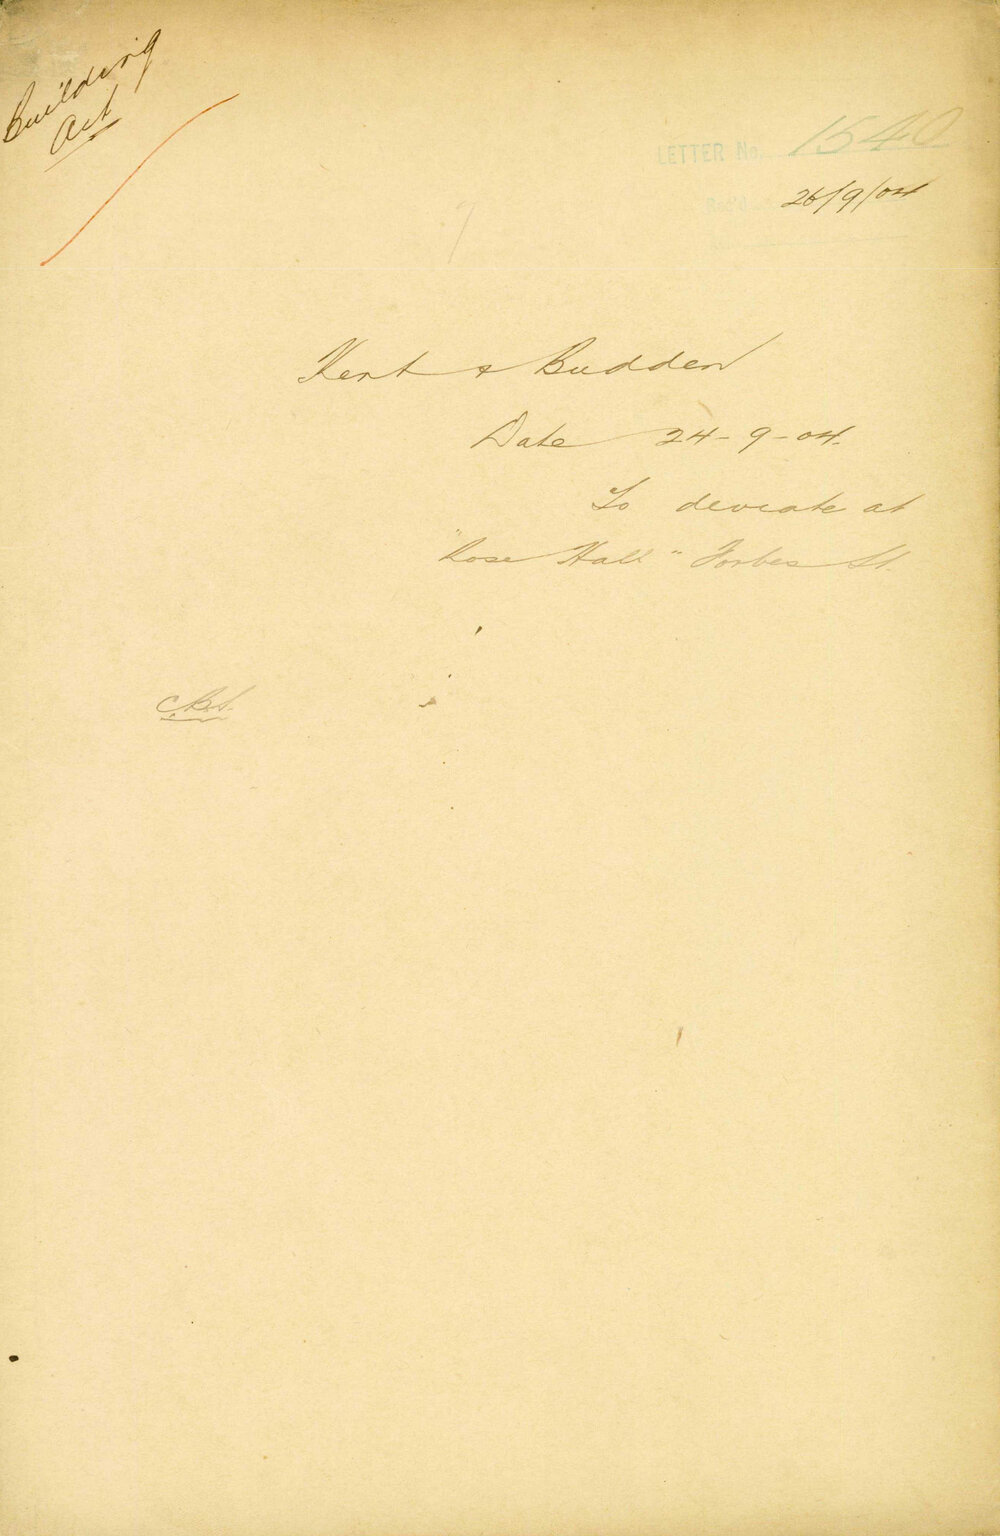 Building
Act
LETTER No. 1540
Rec'd 26/9/04
Kent & Budden
Date 24-9-04.
To deviate at
"Rose Hall" Forbes St.
C.B.S.